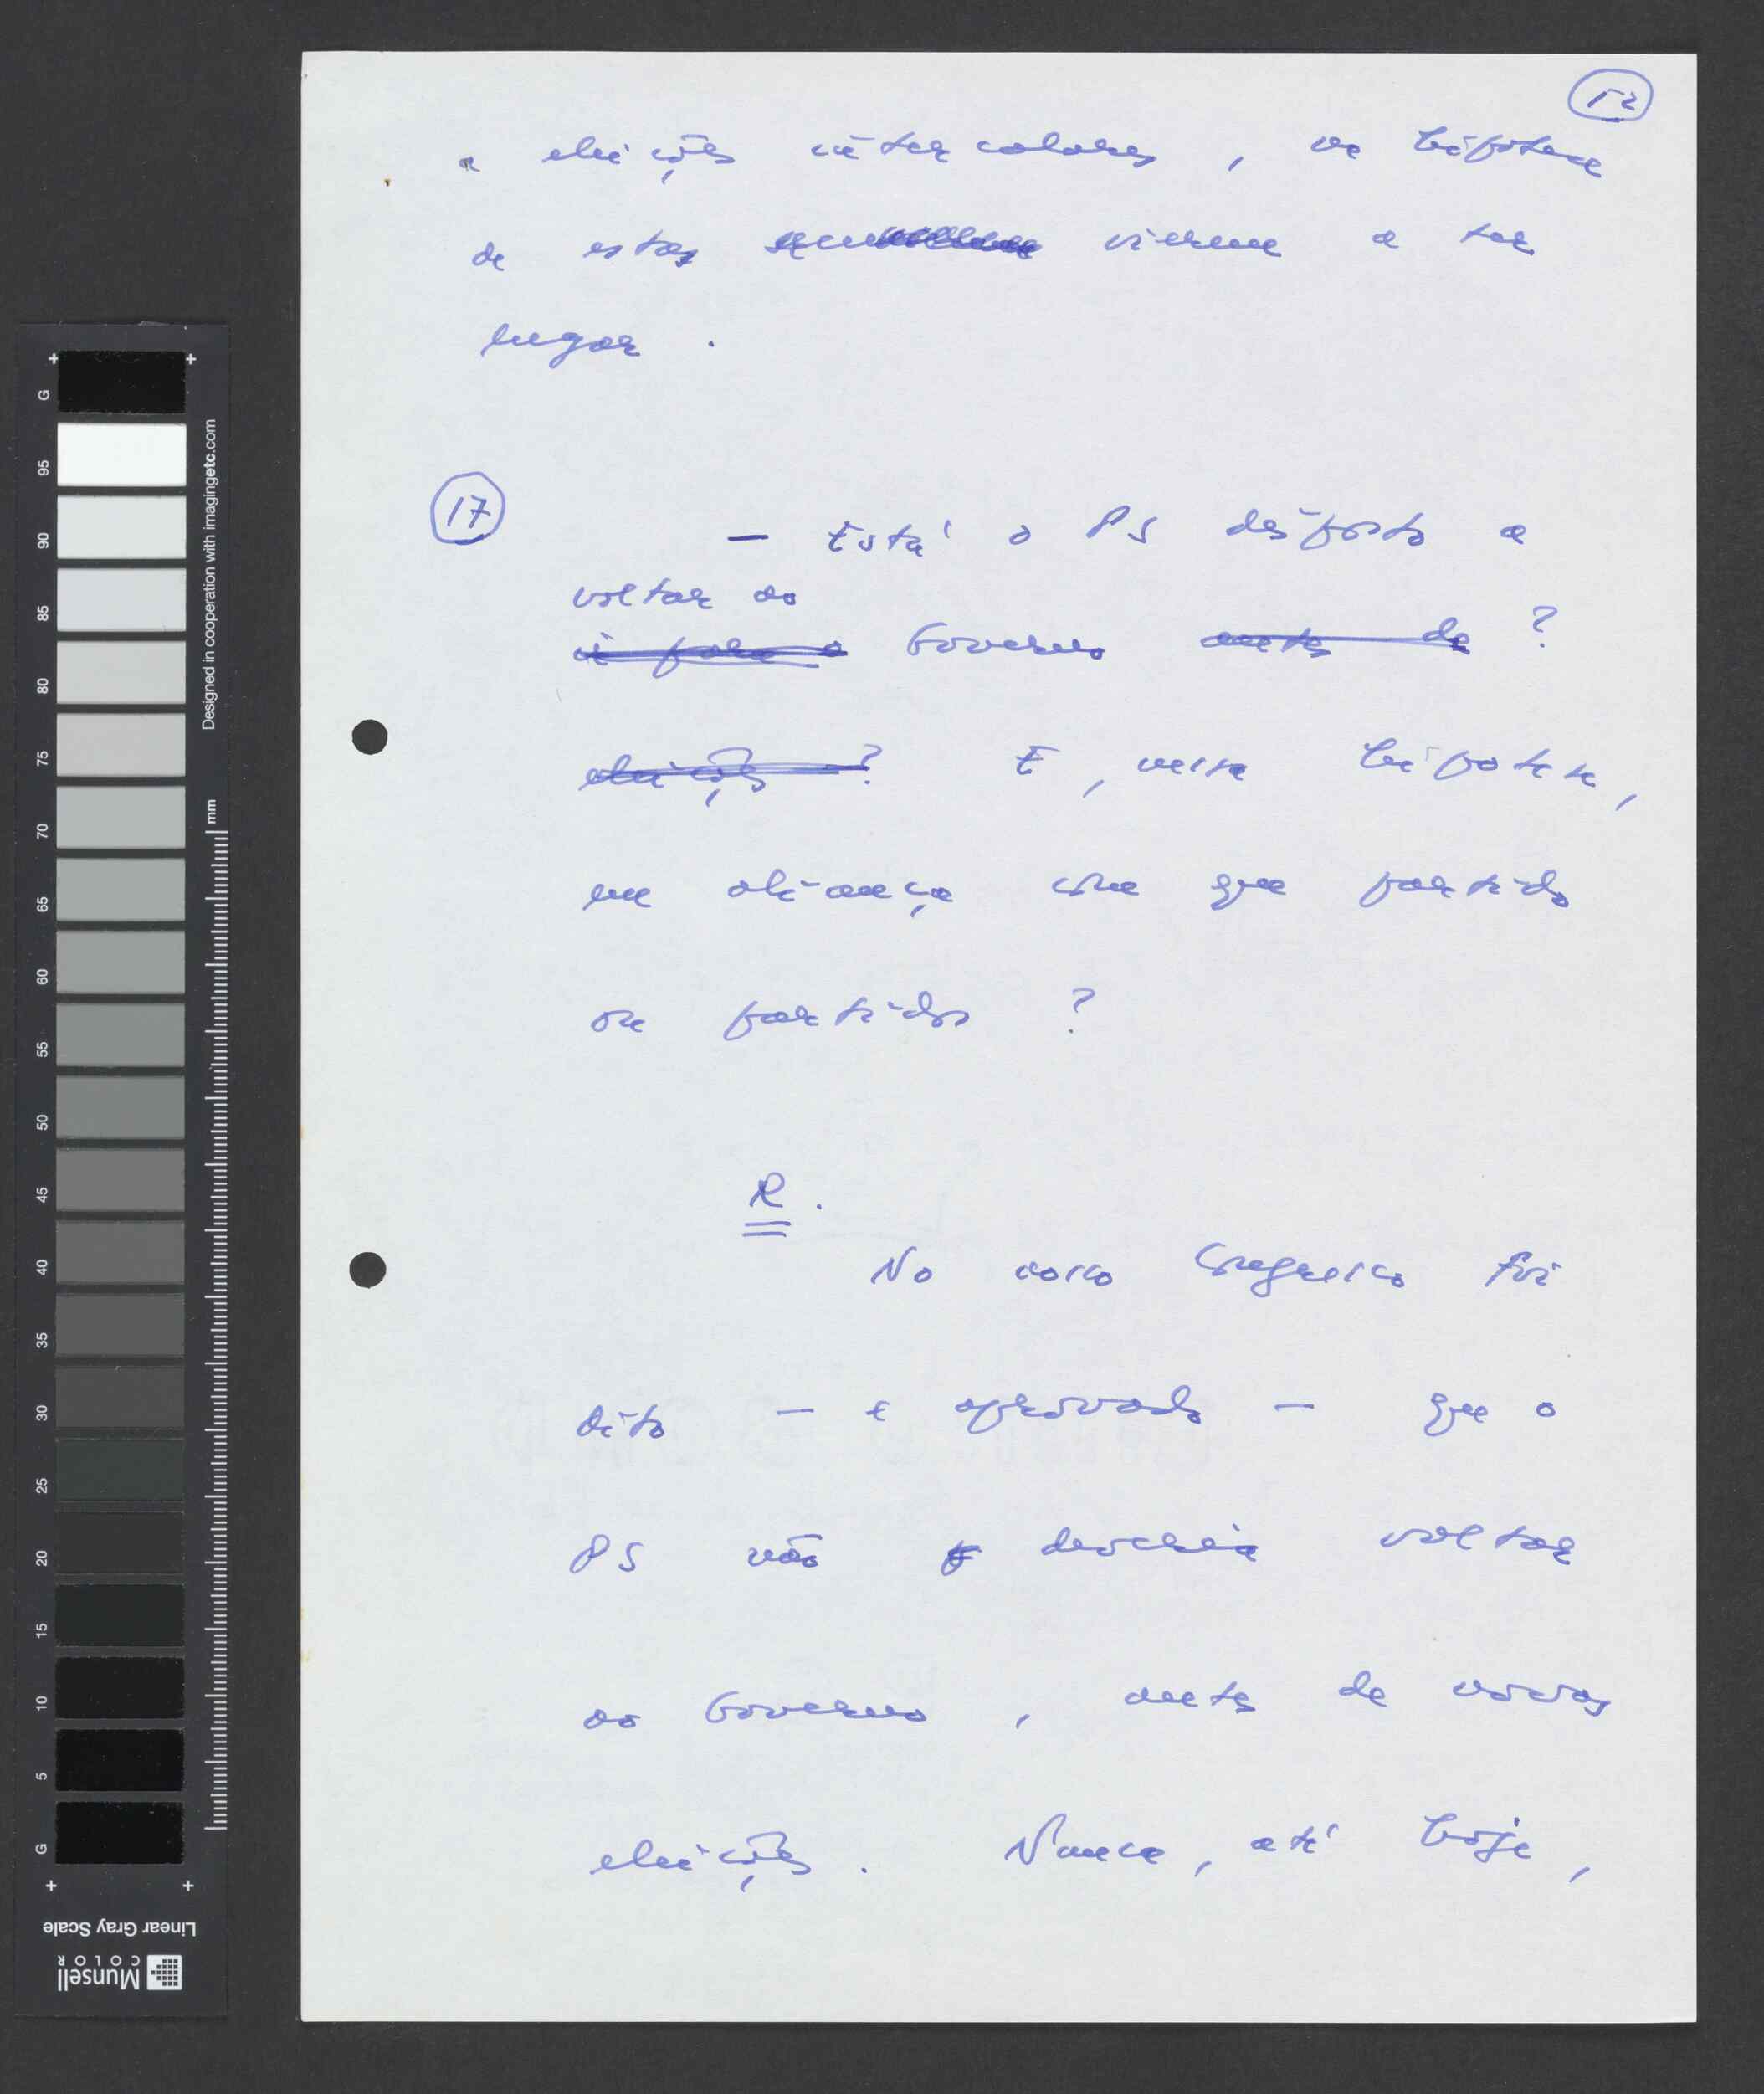 12
a eleições intercalares, na hipótese
de estas virem a ter
lugar.
17
— Está o PS disposto a
voltar ao
ir para o Governo antes de ?
eleições ? E, nessa hipótese,
em aliança com que partido
ou partidos ?
R.
No nosso Congresso foi
dito — e aprovado — que o
PS não deveria voltar
ao Governo, antes de novas
eleições. Nunca, até hoje,
G
95
90
85
80
75
70
65
60
55
50
45
40
35
30
25
20
15
10
5
G
Designed in cooperation with imagingetc.com
mm
Linear Gray Scale
Munsell
COLOR